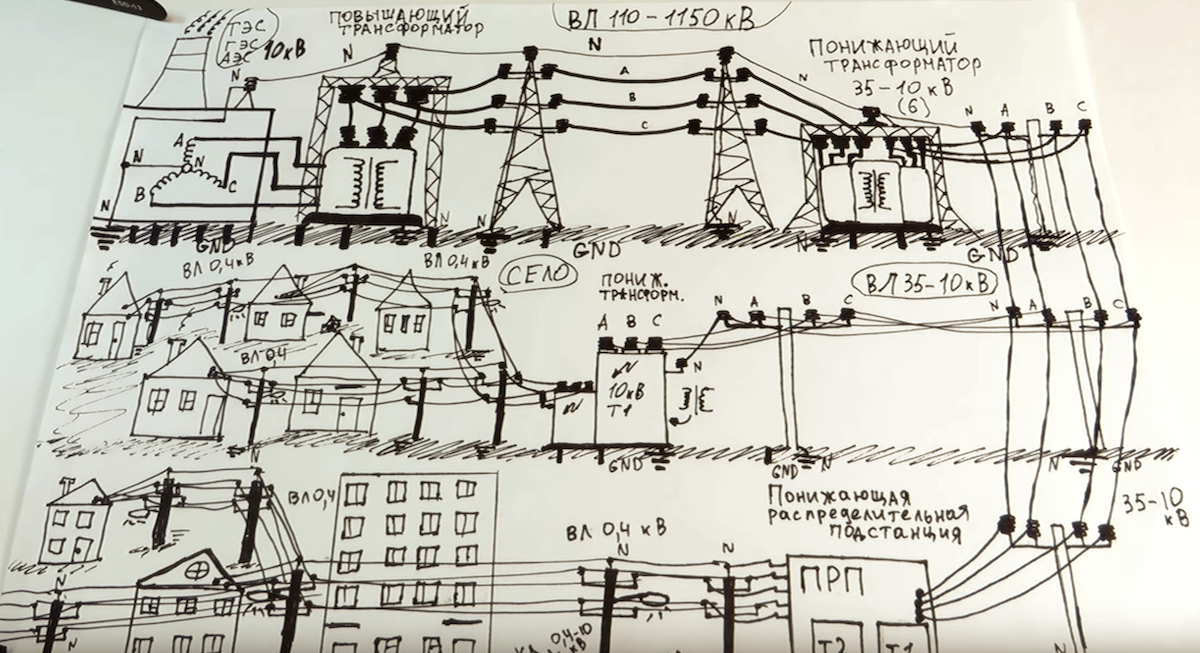 ТЭС
ГЭС
АЭС
10кВ
ПОВЫШАЮЩИЙ
ТРАНСФОРМАТОР
ВЛ 110-1150 кВ
ПОНИЖАЮЩИЙ
ТРАНСФОРМАТОР
35-10 кВ
(6)
N
N
N
N
N
N A B C
A
B
C
A
N
N
B
C
N
N
N
N
N
GND
GND
GND
ВЛ 0,4кВ
ВЛ 0,4кВ
СЕЛО
ПОНИЖ.
ТРАНСФОРМ.
ВЛ 35-10кВ
A B C
N A B C
N A B C
N
10кВ
Т1
ВЛ 0,4
GND
GND
N
N
GND
N
ВЛ 0,4
ВЛ 0,4 кВ
Понижающая
распределительная
подстанция
35-10
кВ
N
N
N
N
N
ПРП
Т2
Т1
0,4-10
кВ
N
N